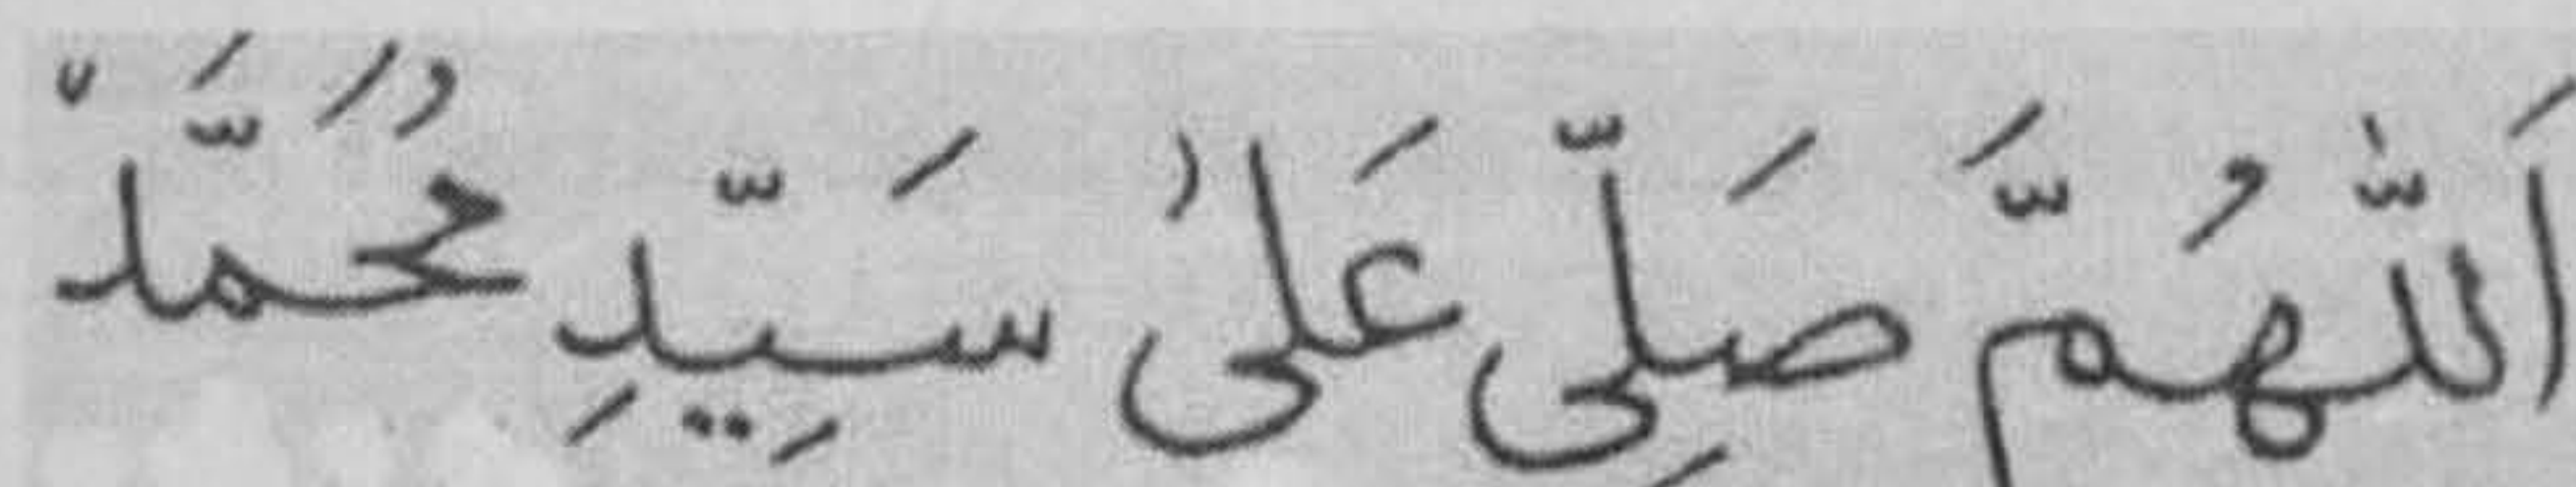 اَللّٰهُمَّ صَلِّى عَلىٰ سَيِّدِ مُحَمَّدْ